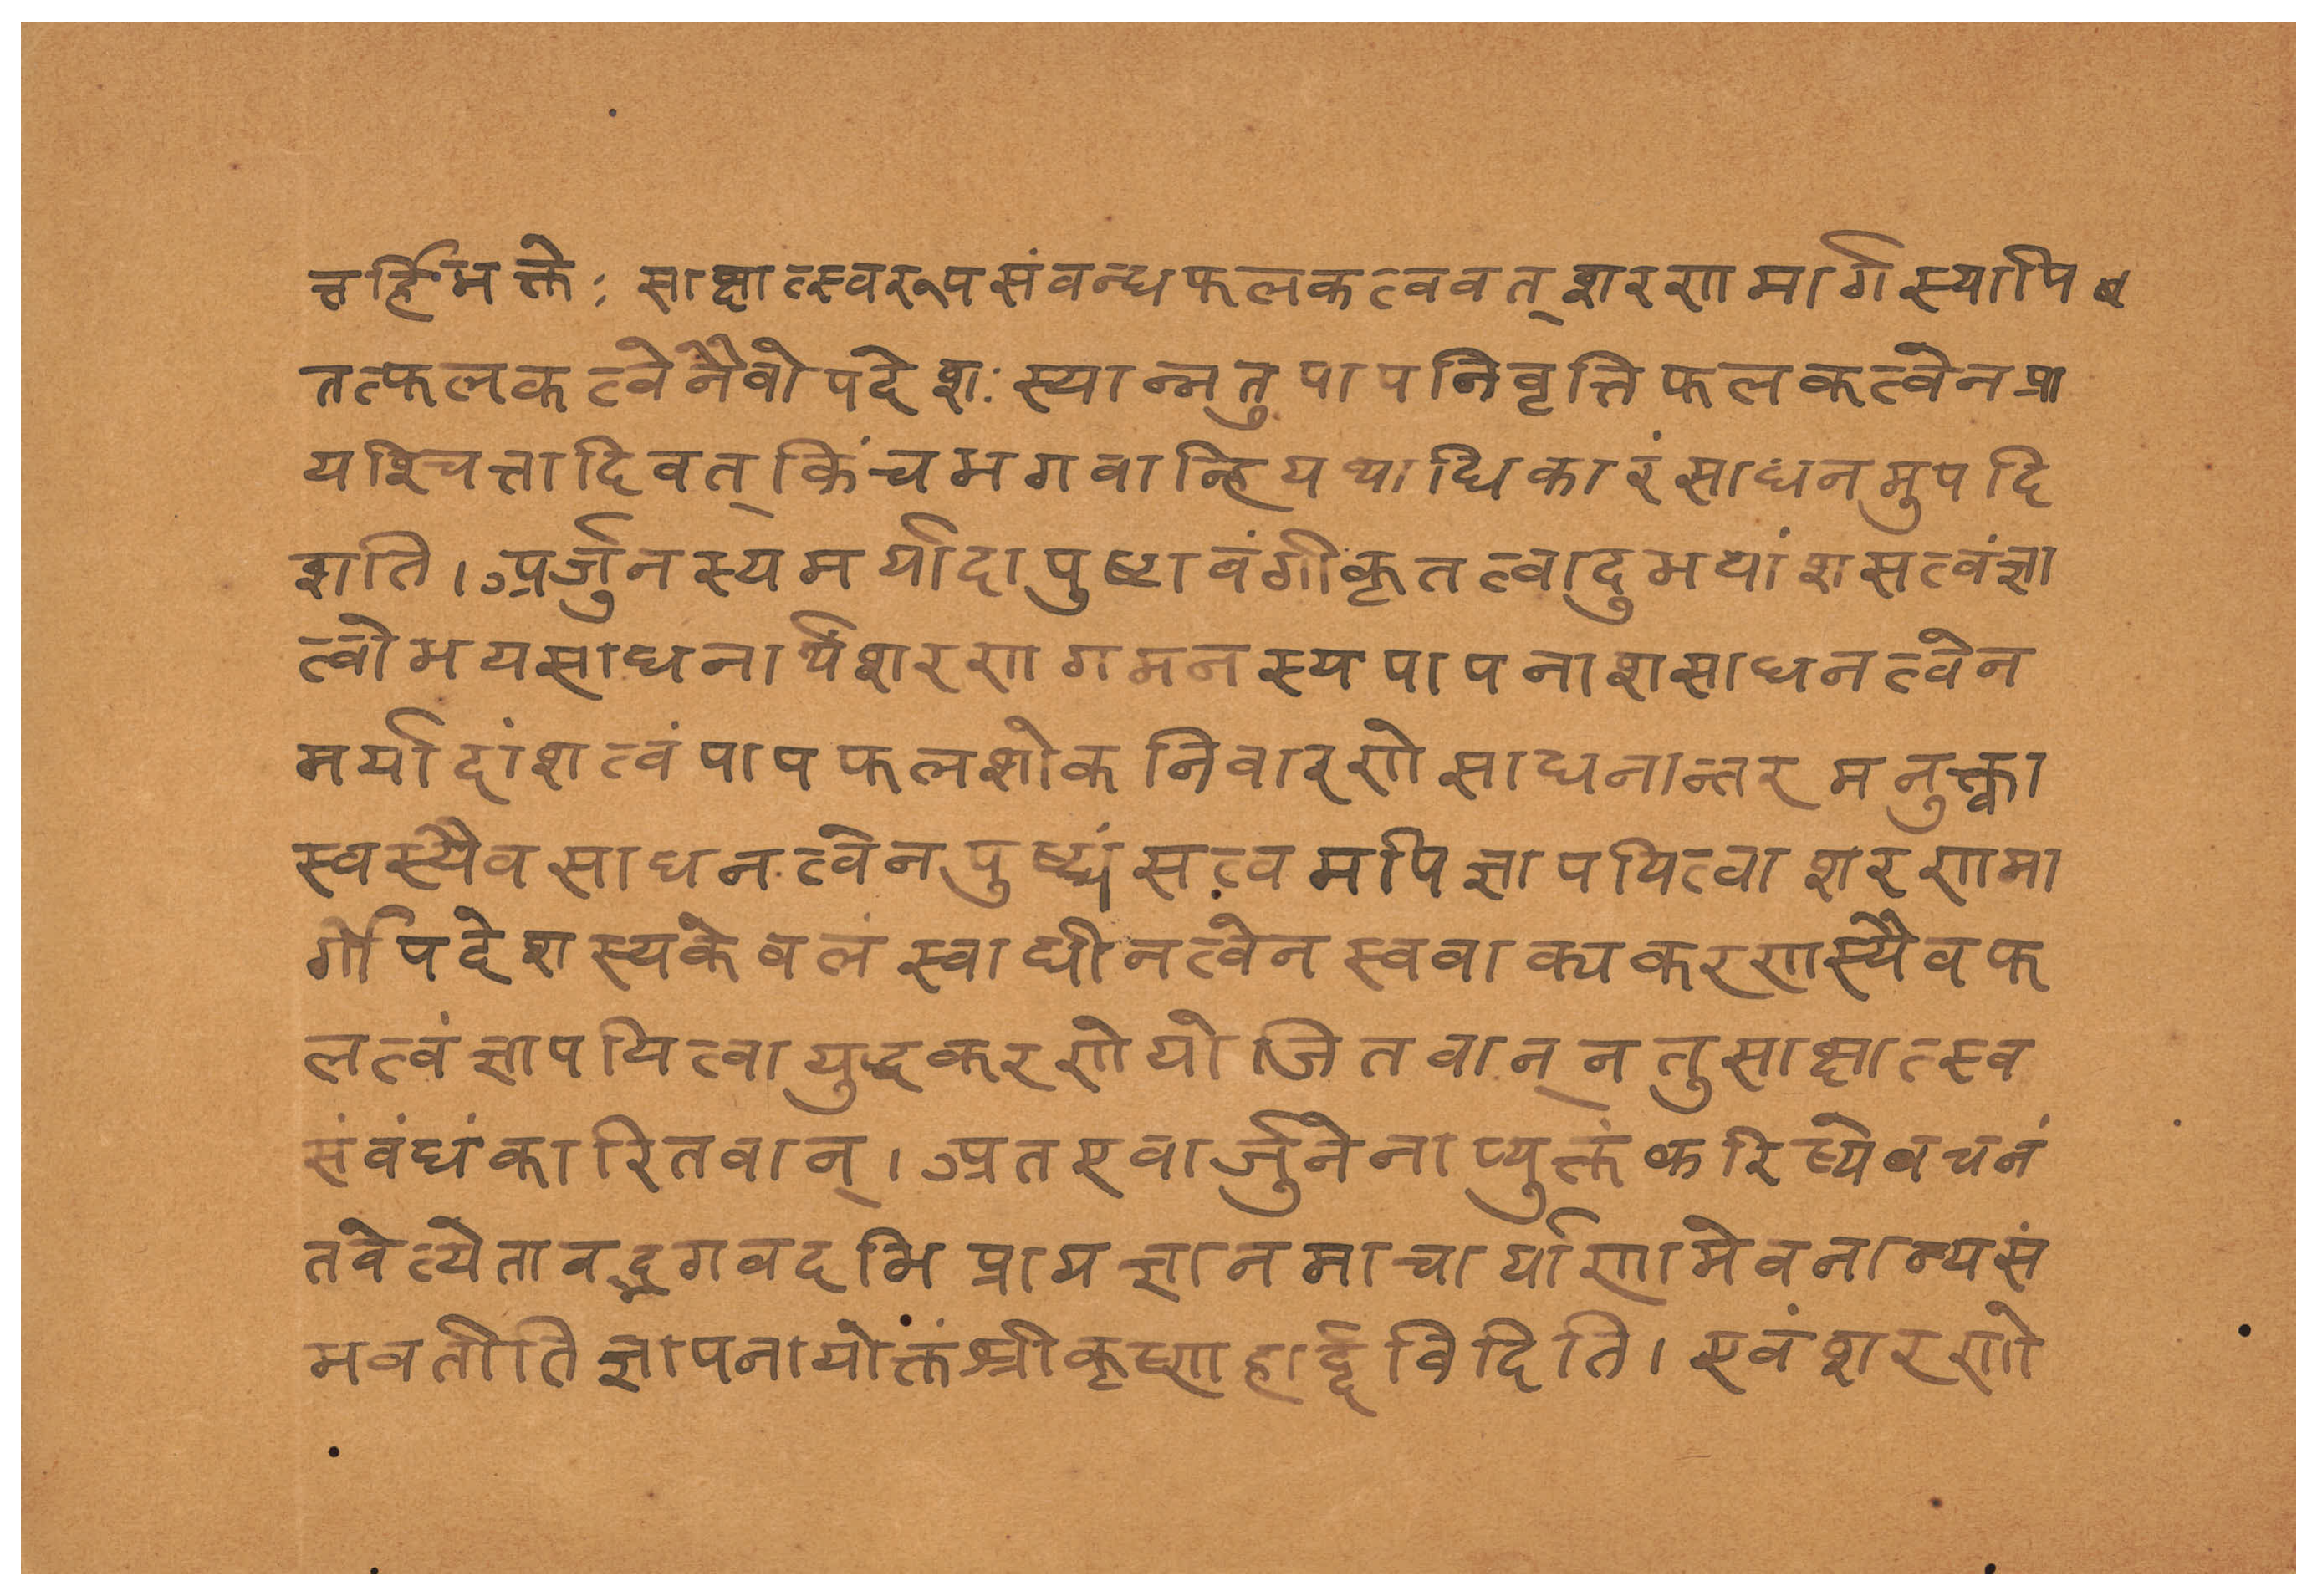 तर्हि भक्तेः साक्षात्स्वरूपसंवन्धफलकत्ववत् शरणमार्गस्यापि
तत्फलकत्वेनैवोपदेशः स्यान्नतु पापनिवृत्तिफलकत्वेन प्रा
यश्चित्तादिवत् किंच भगवान्हि यथाधिकारं साधनमुपदि
शति । अर्जुनस्य मर्यादापुष्टावंगीकृतत्वादुभयांशसत्वं ज्ञा
त्वोभयसाधनार्थं शरणागमनस्य पापनाशसाधनत्वेन
मर्यादांशत्वं पापफलशोकनिवारणे साधनान्तरमनुक्त्वा
स्वस्यैव साधनत्वेन पुष्ट्यंसत्वमपि ज्ञापयित्वा शरणमा
र्गोपदेशस्य केवलं स्वाधीनत्वेन स्ववाक्यकरणस्यैव फ
लत्वं ज्ञापयित्वा युद्धकरणे योजितवान् न तु साक्षात्स्व
संवंधं कारितवान् । अतएवार्जुनेनाप्युक्तं करिष्ये वचनं
तवेत्येतावद्भगवदभिप्रायज्ञानमाचार्याणामेव नान्यसं
भवतीति ज्ञापनायोक्तं श्रीकृष्णहार्द्दविदिति । एवं शरणो